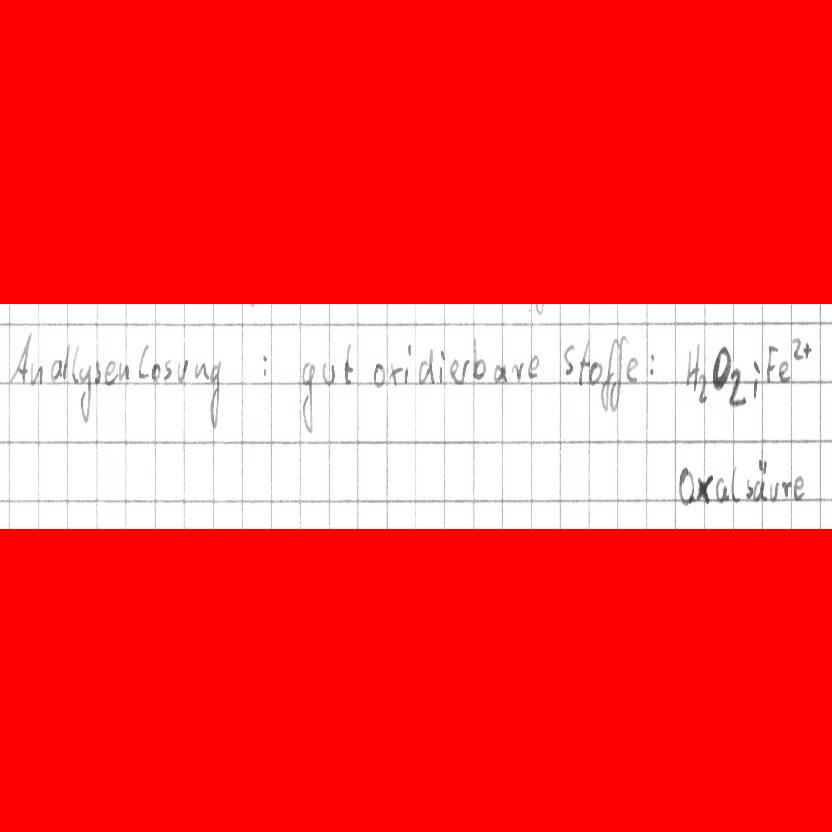 Anallysenlosung : gut oxidierbare Stoffe: H₂O₂; Fe²⁺
Oxalsäure